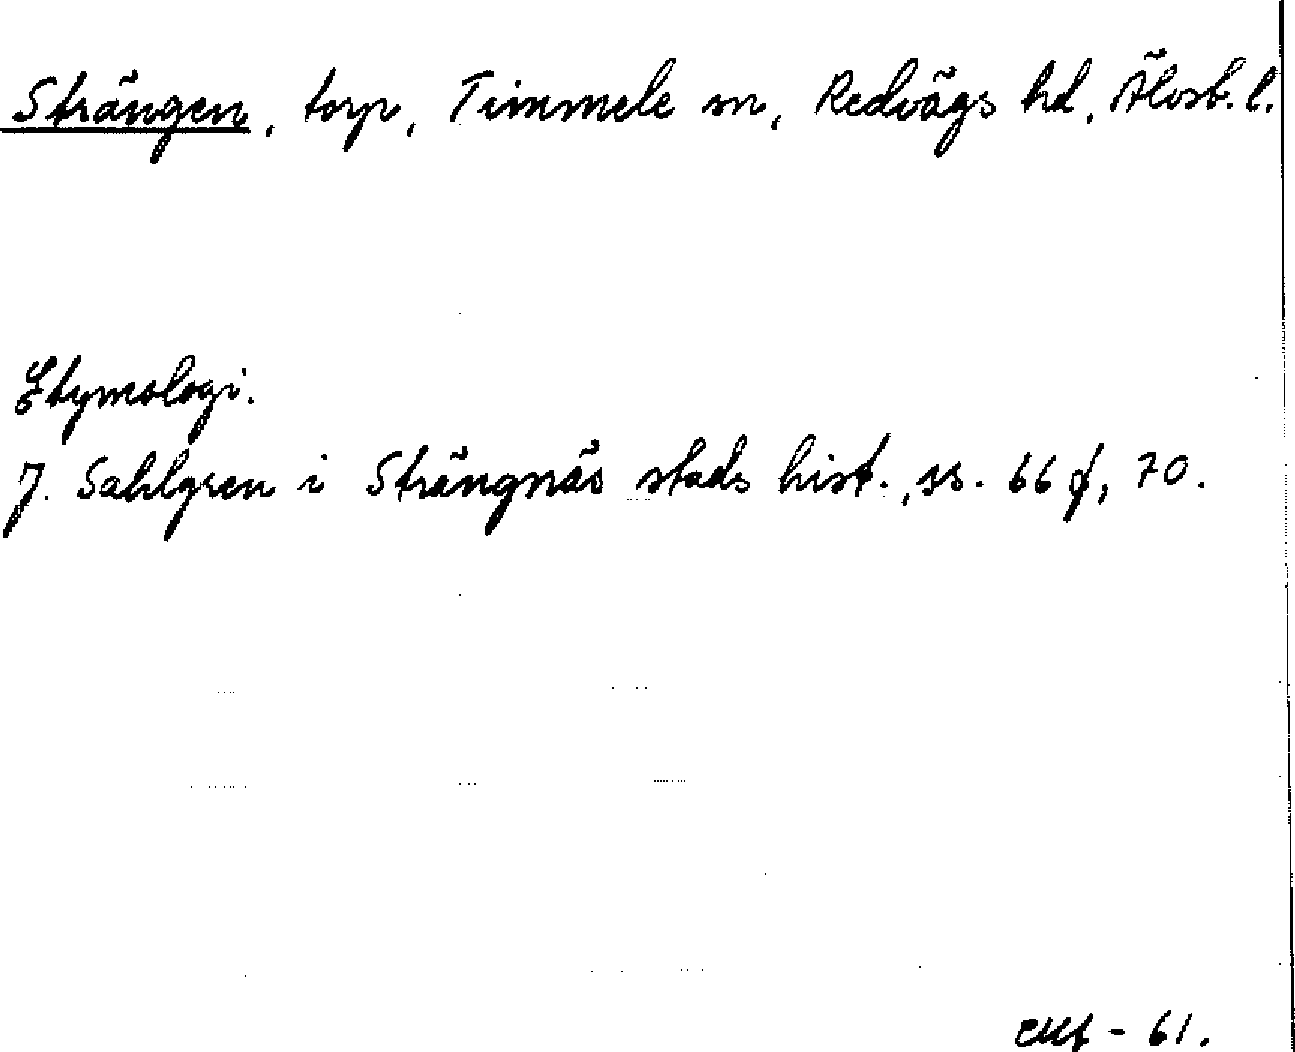 Strängen, torp, Timmele sn, Redvägs hd, Älvsb. l.
Etymologi.
J. Sahlgren i Strängnäs stads hist., ss. 66 f, 70.
- 61.